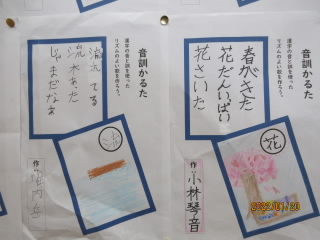 音訓かるた
漢字の音と訓を使った
リズムのよい歌を作ろう。
流れてる
流木あった
じゃまだなぁ
流
作
音訓かるた
漢字の音と訓を使った
リズムのよい歌を作ろう。
春がきた
花だんいっぱい
花さいた
花
作 小林琴音